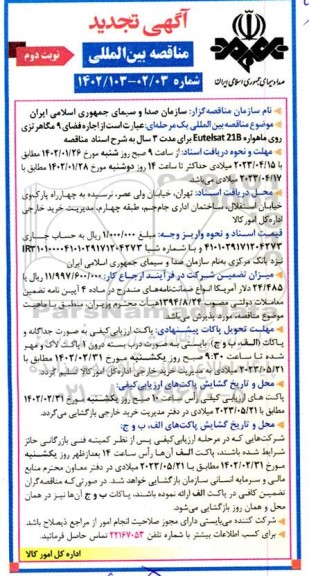 آگهی تجدید
مناقصه بین‌المللی
نوبت دوم
شماره ۰۲/۰۳-۱۴۰۲/۱۰۳
صداوسیمای جمهوری اسلامی ایران
نام سازمان مناقصه گزار: سازمان صدا و سیمای جمهوری اسلامی ایران
موضوع مناقصه بین‌المللی یک مرحله‌ای: عبارت است از اجاره فضای ۹ مگاهرتزی
روی ماهواره Eutelsat 21B برای مدت ۳ سال به شرح اسناد مناقصه
مهلت و نحوه دریافت اسناد: از ساعت ۹ صبح روز شنبه مورخ ۱۴۰۲/۰۱/۲۶ مطابق
با ۲۰۲۳/۰۴/۱۵ میلادی حداکثر تا ساعت ۱۴ روز دوشنبه مورخ ۱۴۰۲/۰۱/۲۸ مطابق با
۲۰۲۳/۰۴/۱۷ میلادی می‌باشد.
محل دریافت اسناد: تهران، خیابان ولی عصر، نرسیده به چهارراه پارک‌وی
خیابان استقلال، ساختمان اداری جام‌جم، طبقه چهارم، مدیریت خرید خارجی
اداره‌کل امور کالا
قیمت اسناد و نحوه واریز وجه: مبلغ ۱/۰۰۰/۰۰۰ ریال به حساب جاری
۴۱۰۱۰۲۹۱۷۱۲۰۴۲۷۳ و با شماره شبا IR۳۱۰۱۰۰۰۰۴۱۰۱۰۲۹۱۷۱۲۰۴۲۷۳
نزد بانک مرکزی به‌نام سازمان صدا و سیمای جمهوری اسلامی ایران
میزان تضمین شرکت در فرآیند ارجاع کار: ۱۱/۹۹۷/۶۰۰/۰۰۰ ریال یا
۲۴/۴۸۵ دلار آمریکا انواع ضمانت‌نامه‌های مندرج در ماده ۴ آیین نامه تضمین
معاملات دولتی مصوب ۱۳۹۴/۸/۲۴ هیأت محترم وزیران، منطبق با ماهیت
موضوع مناقصه مورد پذیرش می‌باشد.
مهلت تحویل پاکات پیشنهادی: پاکت ارزیابی کیفی به صورت جداگانه و
پاکات (الف، ب و ج) بایستی به صورت درب بسته درون ۱ پاکت لاک و مهر
شده تا ساعت ۹:۳۰ صبح روز یکشنبه مورخ ۱۴۰۲/۰۲/۳۱ مطابق با
۲۰۲۳/۰۵/۲۱ میلادی به مدیریت خرید خارجی اداره‌کل امور کالا تسلیم گردد.
محل و تاریخ گشایش پاکت‌های ارزیابی کیفی:
پاکت های ارزیابی کیفی رأس ساعت ۱۰ صبح روز یکشنبه مورخ ۱۴۰۲/۰۲/۳۱
مطابق با ۲۰۲۳/۰۵/۲۱ میلادی در دفتر مدیریت خرید خارجی بازگشایی می‌گردد.
محل و تاریخ گشایش پاکت‌های الف، ب و ج:
شرکت‌هایی که در مرحله ارزیابی کیفی پس از نظر کمیته فنی بازرگانی حائز
شرایط شده باشند، پاکت الف آن‌ها رأس ساعت ۱۴ بعدازظهر روز یکشنبه
مورخ ۱۴۰۲/۰۲/۳۱ مطابق با ۲۰۲۳/۰۵/۲۱ میلادی در دفتر معاون محترم منابع
مالی و سرمایه انسانی سازمان بازگشایی خواهد شد. در صورتی که مناقصه‌گران
تضمین کافی در پاکت الف ارائه نموده باشند، پاکات ب و ج آن‌ها نیز در همان
محل و همان روز بازگشایی می‌شود.
شرکت کننده می‌بایستی دارای مجوز صلاحیت انجام امور از مراجع ذیصلاح باشد.
برای کسب اطلاعات بیشتر با شماره تلفن ۲۲۱۶۷۰۵۳ تماس حاصل فرمائید.
اداره کل امور کالا